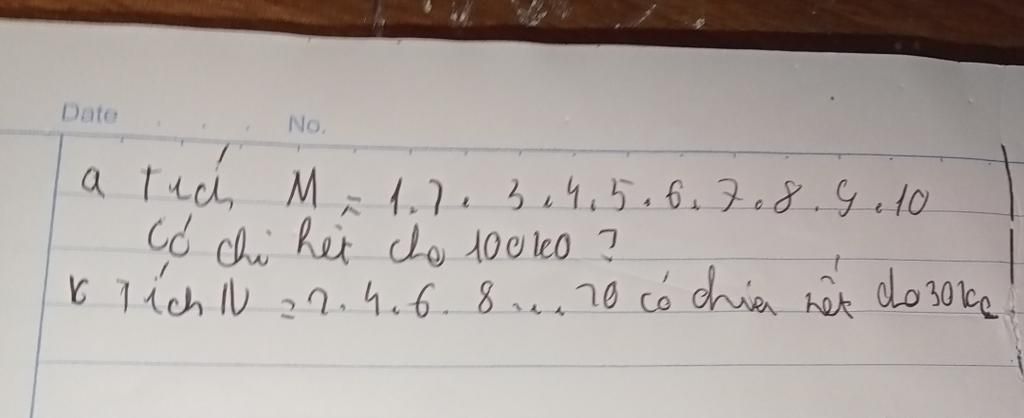 Date No.
a Tích M = 1.2.3.4.5.6.7.8.9.10
Có chi hết cho 100 ko ?
b Tích N = 2.4.6.8...20 có chia hết cho 30 ko